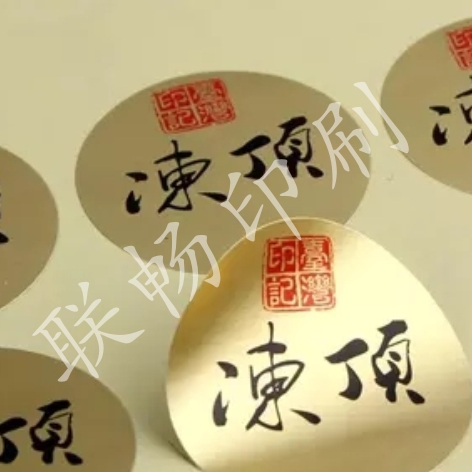 臺灣印記
凍頂
印記
凍
臺灣印記
凍頂
頂
联畅印刷